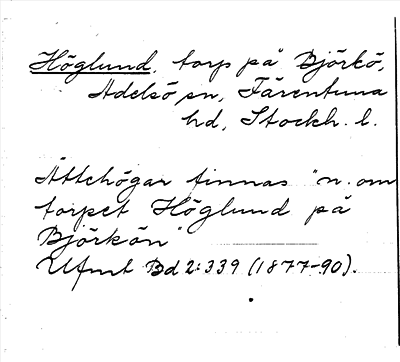 Höglund, torp på Björkö,
Adelsö sn, Färentuna
hd, Stockh. l.
Ättehögar finnas "n. om
torpet Höglund på
Björkön"
Ufmt Bd 2:339 (1877-90).